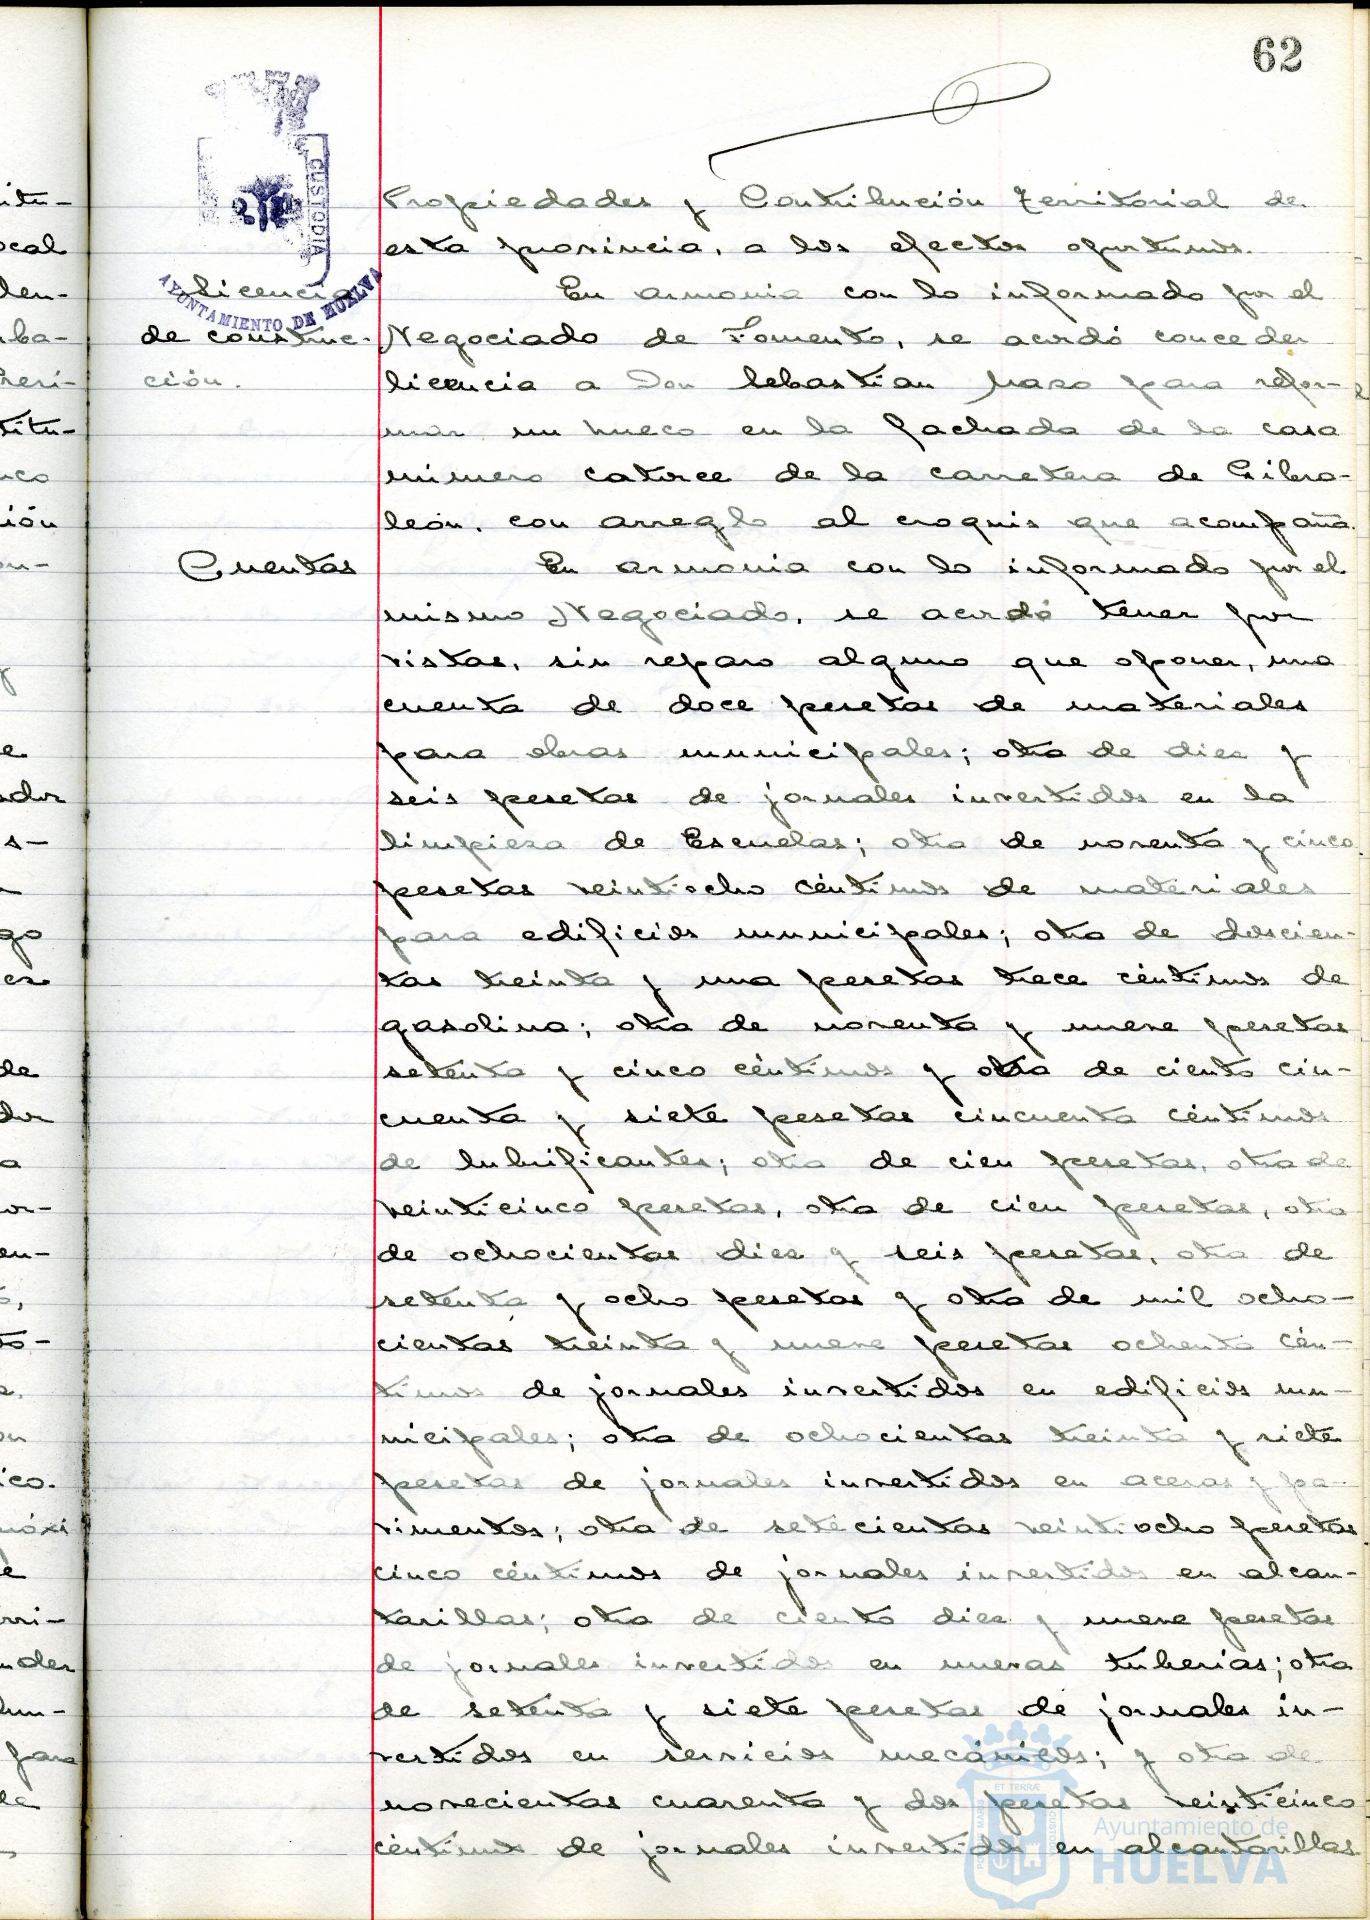 62
Propiedades y Contribución Territorial de
esta provincia, a los efectos oportunos.
Licencia
de construc-
ción.
En armonia con lo informado por el
Negociado de Fomento, se acordó conceder
licencia a Don Sebastian Mazo para refor-
mar un hueco en la fachada de la casa
número catorce de la carretera de Gibra-
león, con arreglo al croquis que acompaña.
Cuentas
En armonia con lo informado por el
mismo Negociado, se acordó tener por
vistas, sin reparo alguno que oponer, una
cuenta de doce pesetas de materiales
para obras municipales; otra de diez y
seis pesetas de jornales invertidos en la
limpieza de Escuelas; otra de noventa y cinco
pesetas veintiocho céntimos de materiales
para edificios municipales; otra de doscien-
tas treinta y una pesetas trece céntimos de
gasolina; otra de noventa y nueve pesetas
setenta y cinco céntimos y otra de ciento cin-
cuenta y siete pesetas cincuenta céntimos
de lubrificantes; otra de cien pesetas, otra de
veinticinco pesetas, otra de cien pesetas, otra
de ochocientas diez y seis pesetas, otra de
setenta y ocho pesetas y otra de mil ocho-
cientas treinta y nueve pesetas ochenta cén-
timos de jornales invertidos en edificios mu-
nicipales; otra de ochocientas treinta y siete
pesetas de jornales invertidos en aceras y pa-
vimentos; otra de setecientas veintiocho pesetas
cinco céntimos de jornales invertidos en alcan-
tarillas; otra de ciento diez y nueve pesetas
de jornales invertidos en nuevas tuberías; otra
de setenta y siete pesetas de jornales in-
vertidos en servicios mecánicos; y otra de
novecientas cuarenta y dos pesetas veinticinco
céntimos de jornales invertidos en alcantarillas
CUSTODIA
AYUNTAMIENTO DE HUELVA
Ayuntamiento de
HUELVA